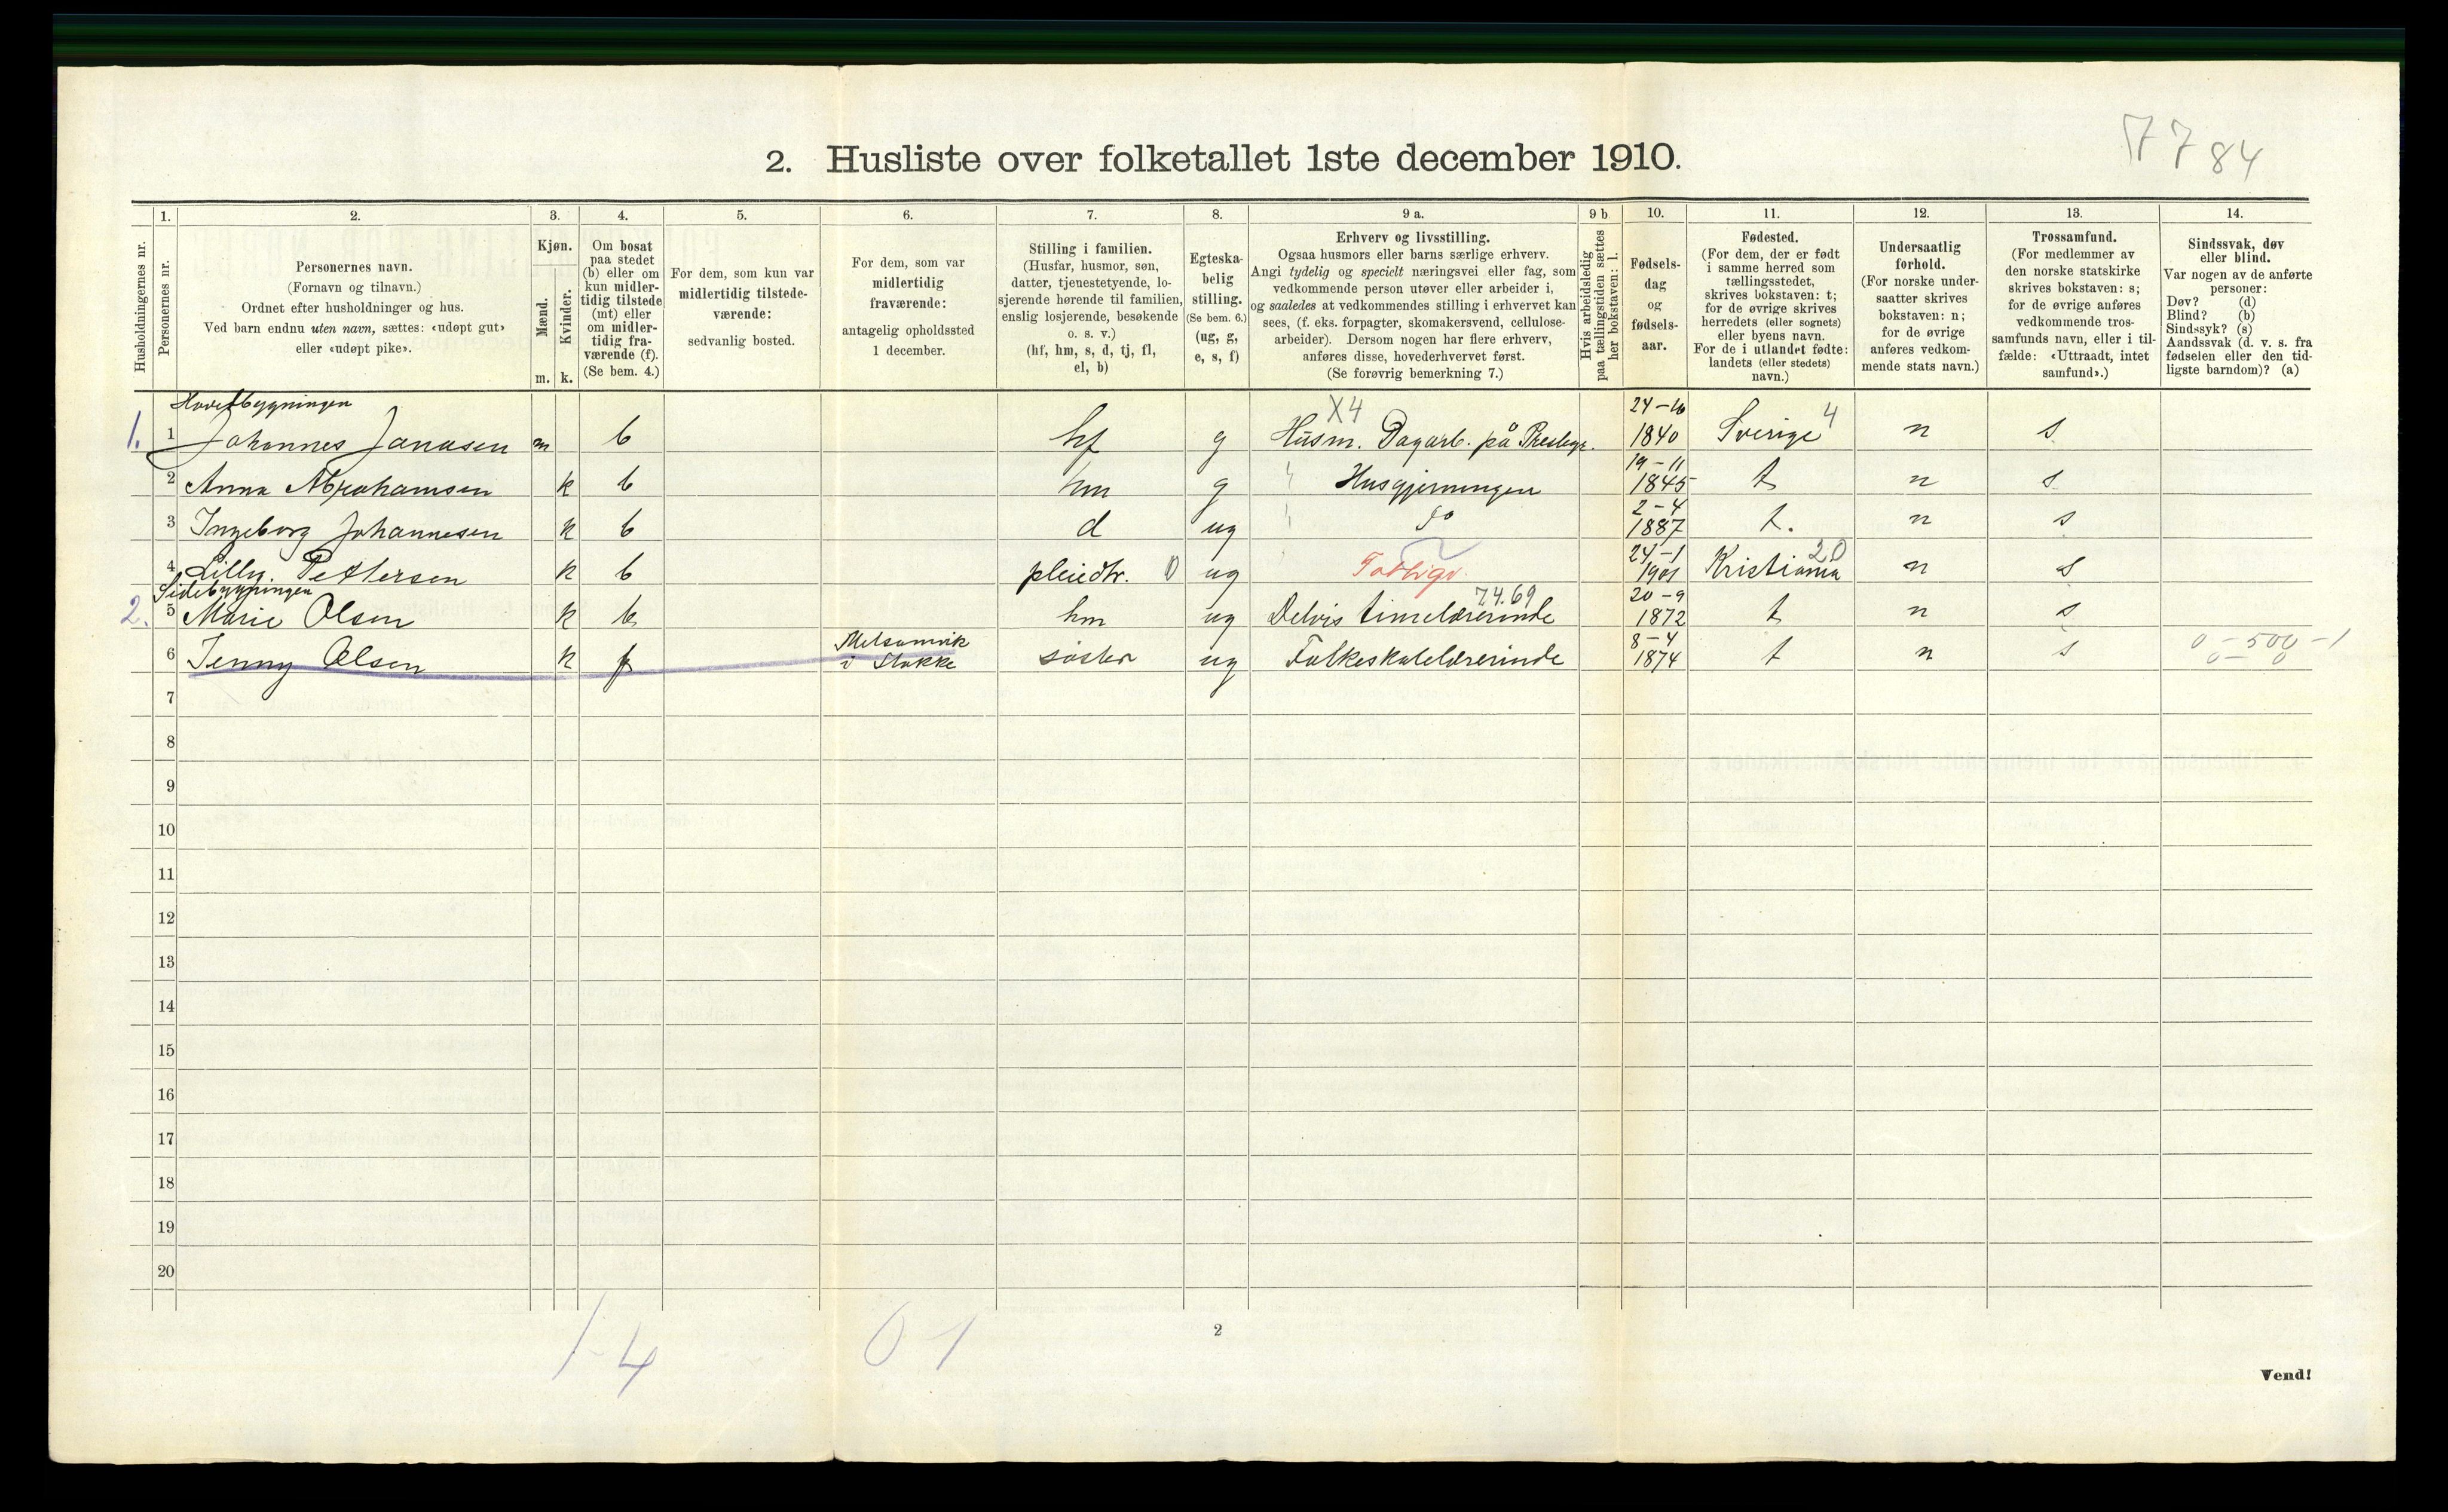 7784
2. Husliste over folketallet 1ste december 1910.
1. 2. 3. 4. 5. 6. 7. 8. 9 a. 9 b 10. 11. 12. 13. 14.
Husholdningernes nr.
Personernes nr.
Personernes navn.
(Fornavn og tilnavn.)
Ordnet efter husholdninger og hus.
Ved barn endnu uten navn, sættes: «udøpt gut»
eller «udøpt pike».
Kjøn.
Mænd.
Kvinder.
m. k.
Om bosat
paa stedet
(b) eller om
kun midler-
tidig tilstede
(mt) eller
om midler-
tidig fra-
værende (f).
(Se bem. 4.)
For dem, som kun var
midlertidig tilstede-
værende:
sedvanlig bosted.
For dem, som var
midlertidig
fraværende:
antagelig opholdssted
1 december.
Stilling i familien.
(Husfar, husmor, søn,
datter, tjenestetyende, lo-
sjerende hørende til familien,
enslig losjerende, besøkende
o. s. v.)
(hf, hm, s, d, tj, fl,
el, b)
Egteska-
belig
stilling.
(Se bem. 6.)
(ug, g,
e, s, f)
Erhverv og livsstilling.
Ogsaa husmors eller barns særlige erhverv.
Angi tydelig og specielt næringsvei eller fag, som
vedkommende person utøver eller arbeider i,
og saaledes at vedkommendes stilling i erhvervet kan
sees, (f. eks. forpagter, skomakersvend, cellulose-
arbeider). Dersom nogen har flere erhverv,
anføres disse, hovederhvervet først.
(Se forøvrig bemerkning 7.)
Hvis arbeidsledig
paa tællingstiden sættes
her bokstaven: l.
Fødsels-
dag
og
fødsels-
aar.
Fødested.
(For dem, der er født
i samme herred som
tællingsstedet,
skrives bokstaven: t;
for de øvrige skrives
herredets (eller sognets)
eller byens navn.
For de i utlandet fødte:
landets (eller stedets)
navn.)
Undersaatlig
forhold.
(For norske under-
saatter skrives
bokstaven: n;
for de øvrige
anføres vedkom-
mende stats navn.)
Trossamfund.
(For medlemmer av
den norske statskirke
skrives bokstaven: s;
for de øvrige anføres
vedkommende tros-
samfunds navn, eller i til-
fælde: «Uttraadt, intet
samfund».)
Sindssvak, døv
eller blind.
Var nogen av de anførte
personer:
Døv? (d)
Blind? (b)
Sindssyk? (s)
Aandssvak (d. v. s. fra
fødselen eller den tid-
ligste barndom)? (a)
Hovedbygningen X4 24-10 4
1. 1 Johannes Janasen m b hf g Husm. Dagarb. på Prestegr. 1840 Sverige n s
19-11
2 Anna Abrahamsen k b hm g Husgjerningen 1845 t n s
2-4
3 Ingeborg Johannesen k b d ug do 1887 t. n s
24-1 20
4 Lilly Pettersen k b pleiedtr. 0 ug 1901 Kristiania n s
Sidebygningen 74.69 20-9
2. 5 Marie Olsen k b hm ug Delvis timelærerinde 1872 t n s
Melsomvik 8-4 0-500-1
6 Jenny Olsen k f i Stokke søster ug Folkeskolelærerinde 1874 t n s 0-0
7
8
9
10
11
12
13
14
15
16
17
18
19
20
1-4 01
2
Vend!